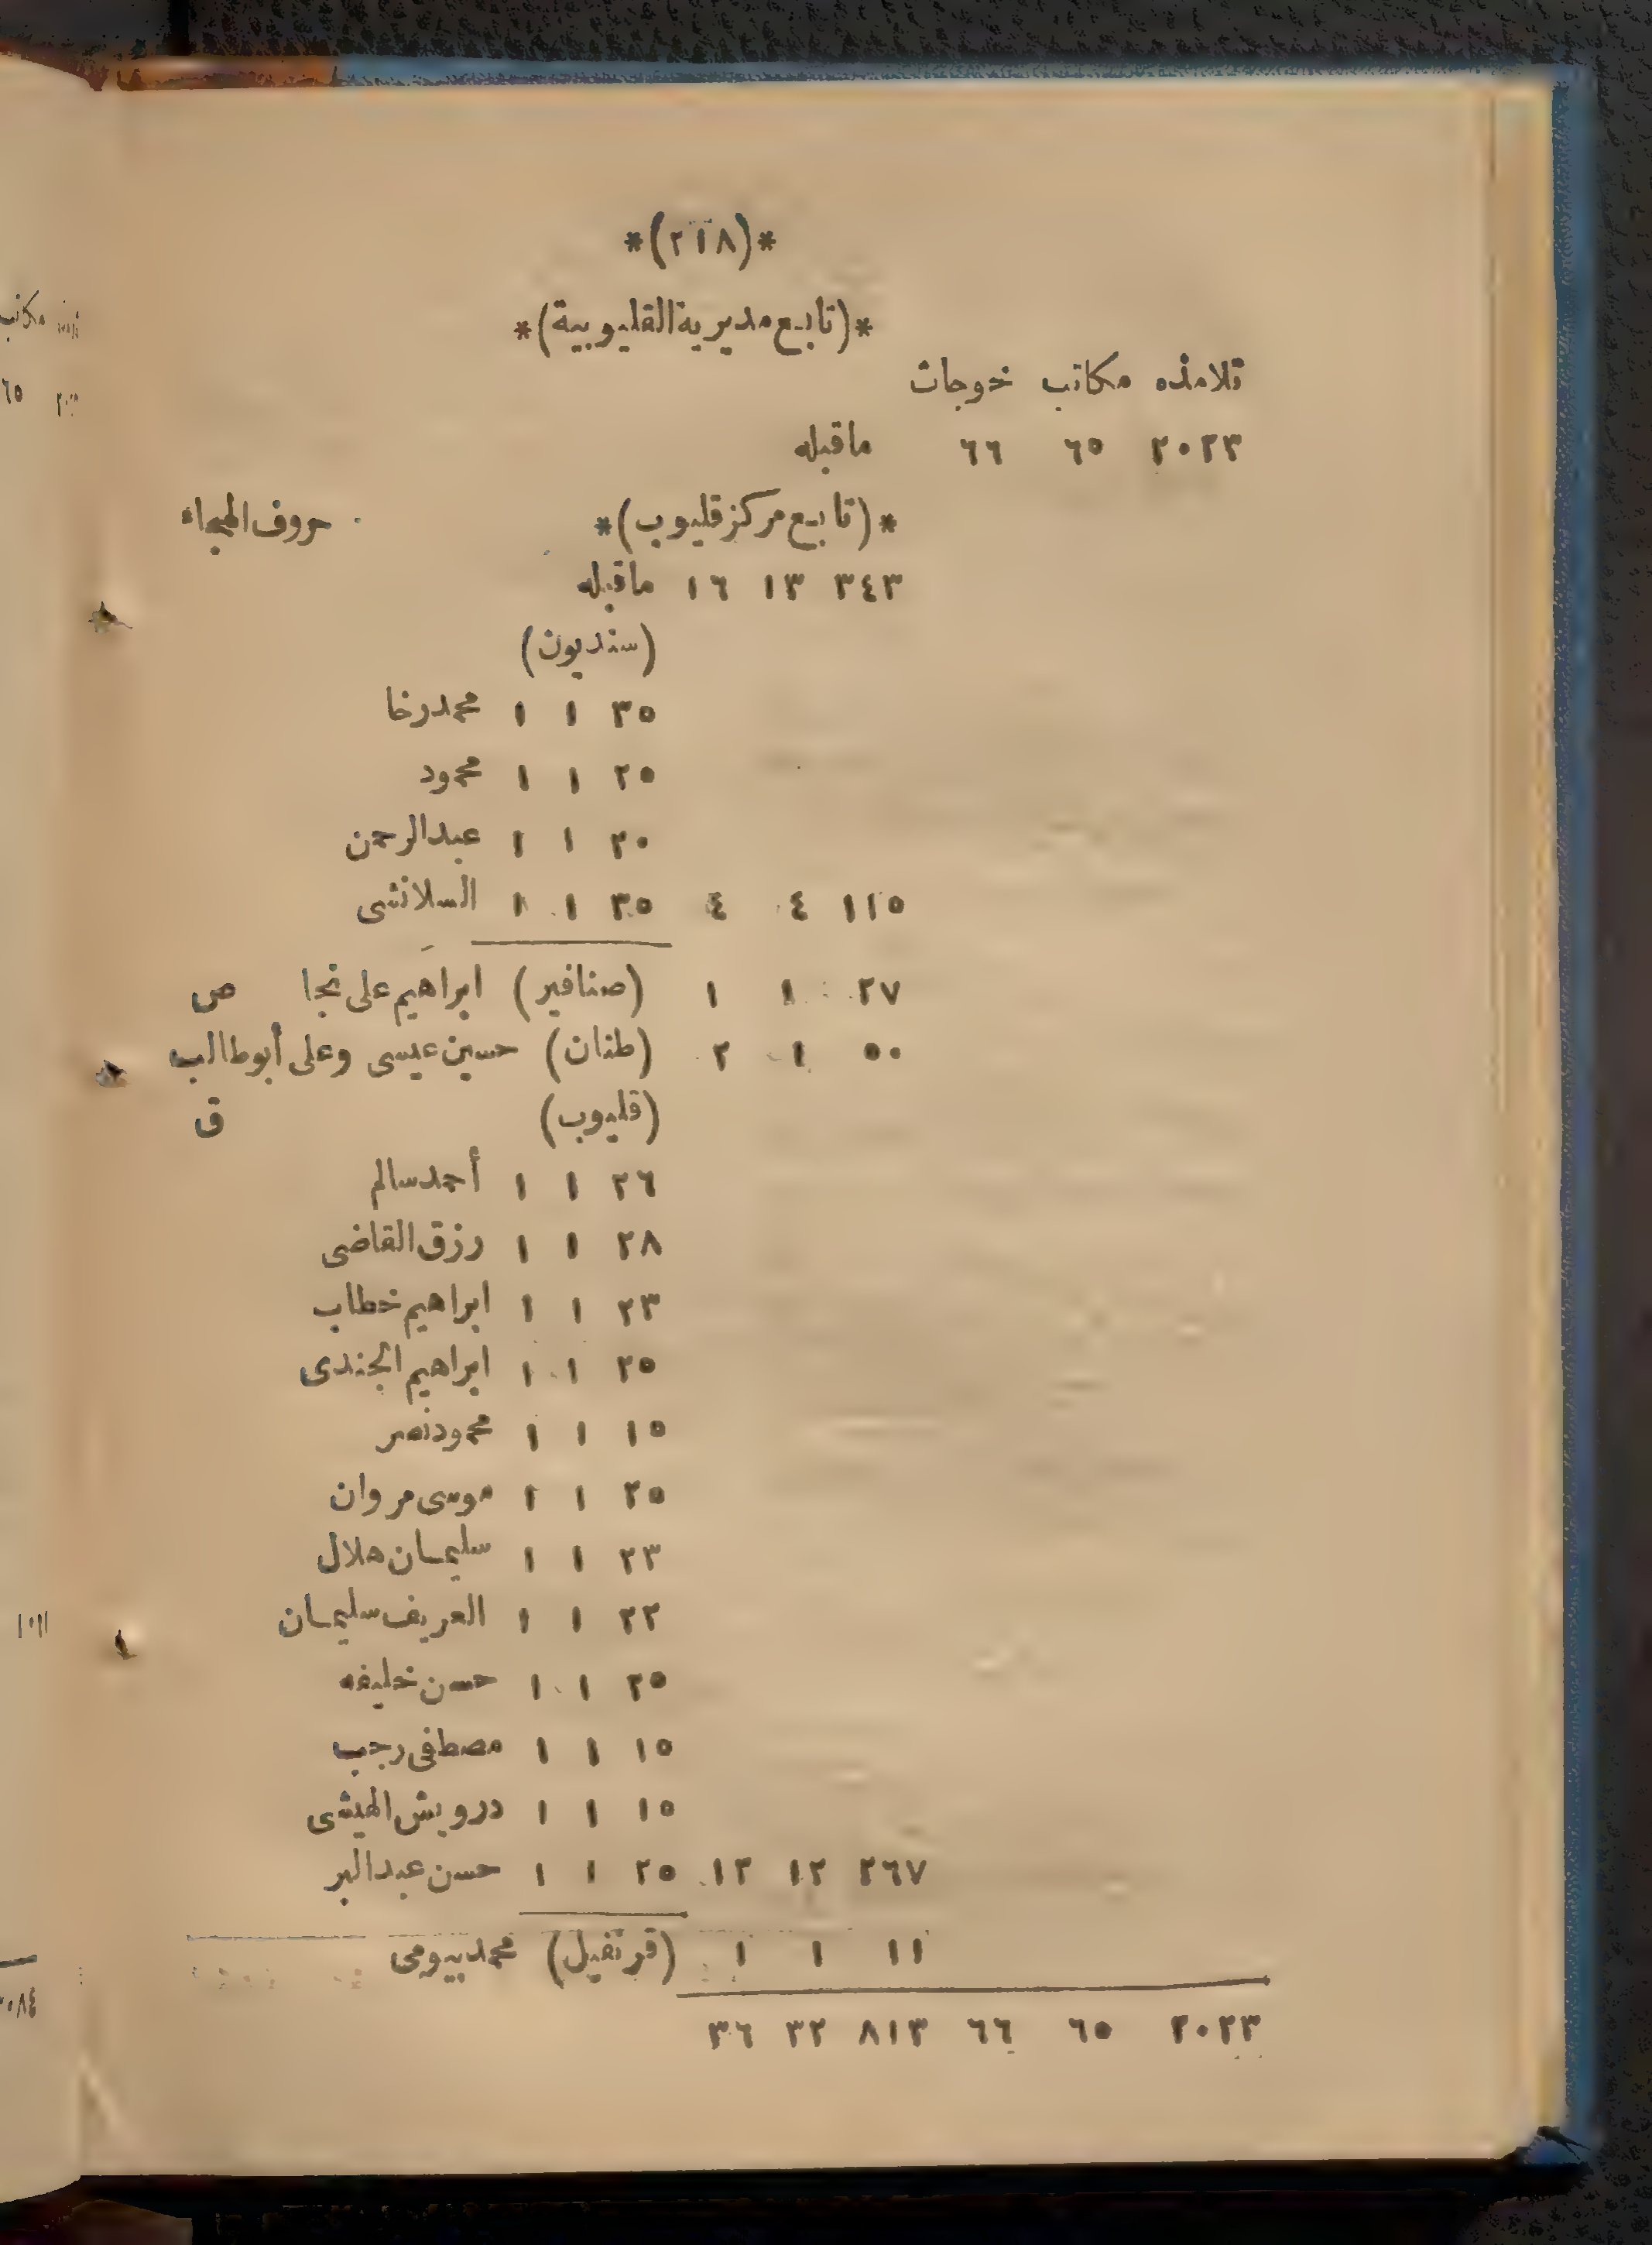 *(٢١٨)*
*(تابع مديرية القليوبية)*
تلامذه مكاتب خوجات
٢٠٢٣ ٦٥ ٦٦ ماقبله
*(تابع مركز قليوب)* حروف الهجاء
٣٤٣ ١٣ ١٦ ماقبله
(سنديون)
٣٥ ١ ١ محمد رخا
٢٥ ١ ١ محمود
٢٠ ١ ١ عبد الرحمن
١١٥ ٤ ٤ ٣٥ ١ ١ السلانشى
٢٧ ١ ١ (صنافير) ابراهيم على نجا ص
٥٠ ١ ٢ (طنان) حسين عيسى وعلى أبوطالب
(قليوب) ق
٢٦ ١ ١ أحمد سالم
٢٨ ١ ١ رزق القاضى
٢٣ ١ ١ ابراهيم خطاب
٢٥ ١ ١ ابراهيم الجندى
١٥ ١ ١ محمود نصر
٢٥ ١ ١ موسى مروان
٢٣ ١ ١ سليمان هلال
٢٢ ١ ١ العريف سليمان
٢٥ ١ ١ حسن خليفه
١٥ ١ ١ مصطفى رجب
١٥ ١ ١ درويش الهيشى
٢٦٧ ١٢ ١٢ ٢٥ ١ ١ حسن عبد البر
١١ ١ ١ (قرنفيل) محمد بيومى
٢٠٢٣ ٦٥ ٦٦ ٨١٣ ٣٢ ٣٦